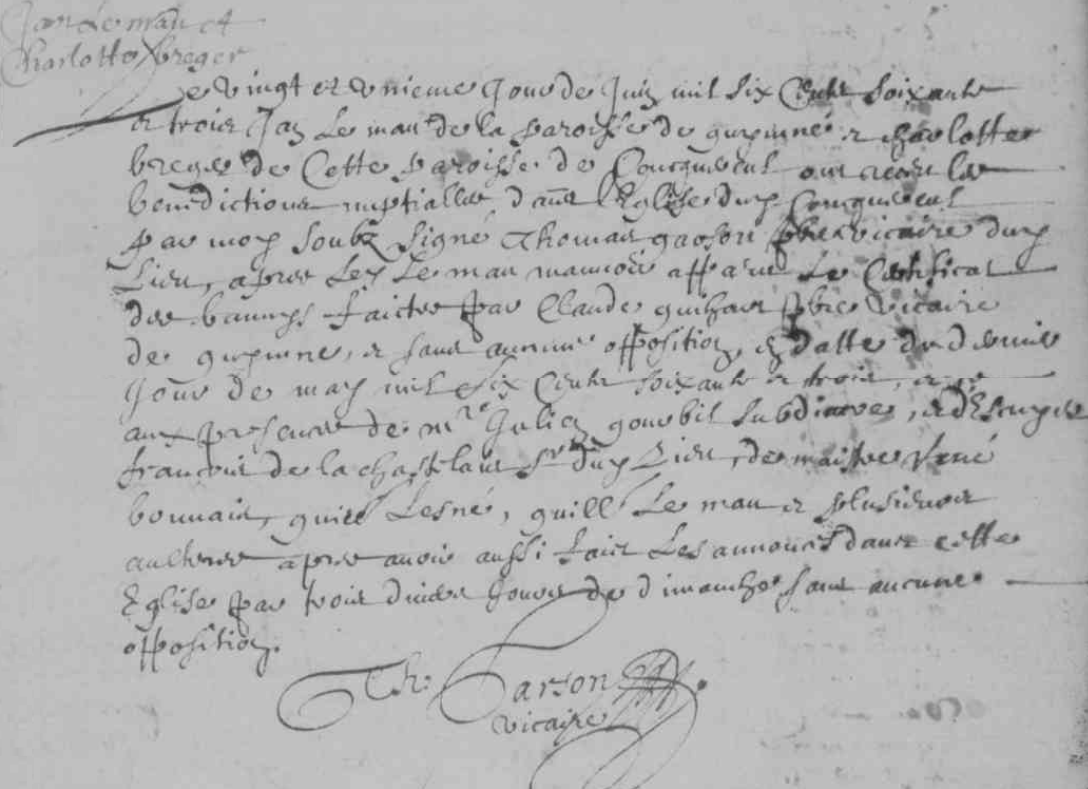 Jan Le man et
Charlotte breger
Le vingt et unieme jour de juin mil six centz soixante
et trois Jan Le man de la paroisse de guipinné et charlotte
breger de Cette paroisse de Courqueul ont receu les
benedictions nuptialles dans l'Eglise dud Courqueul
par moy soubz signé Thomas garson pbre vicaire dud
Lieu, apres led Le man
apparu Le Certificat
des bannys faictes par Claude guihart pbre vicaire
de guipinne, et sans aucune opposition, en datte du dernier
jour de may mil six centz soixante et trois, et ce
aux presences de mre Julien goubil subdiacre, et d'Escuyer
francois de la chastelais sr dud Lieu, de maistre René
bonnais, guill Lesné, guill Le man et plusieurs
aultres apres avoir aussi faict Les annonces dans cette
Eglise par trois divers jours de dimanche sans aucune
opposition.
Th. Garson
vicaire